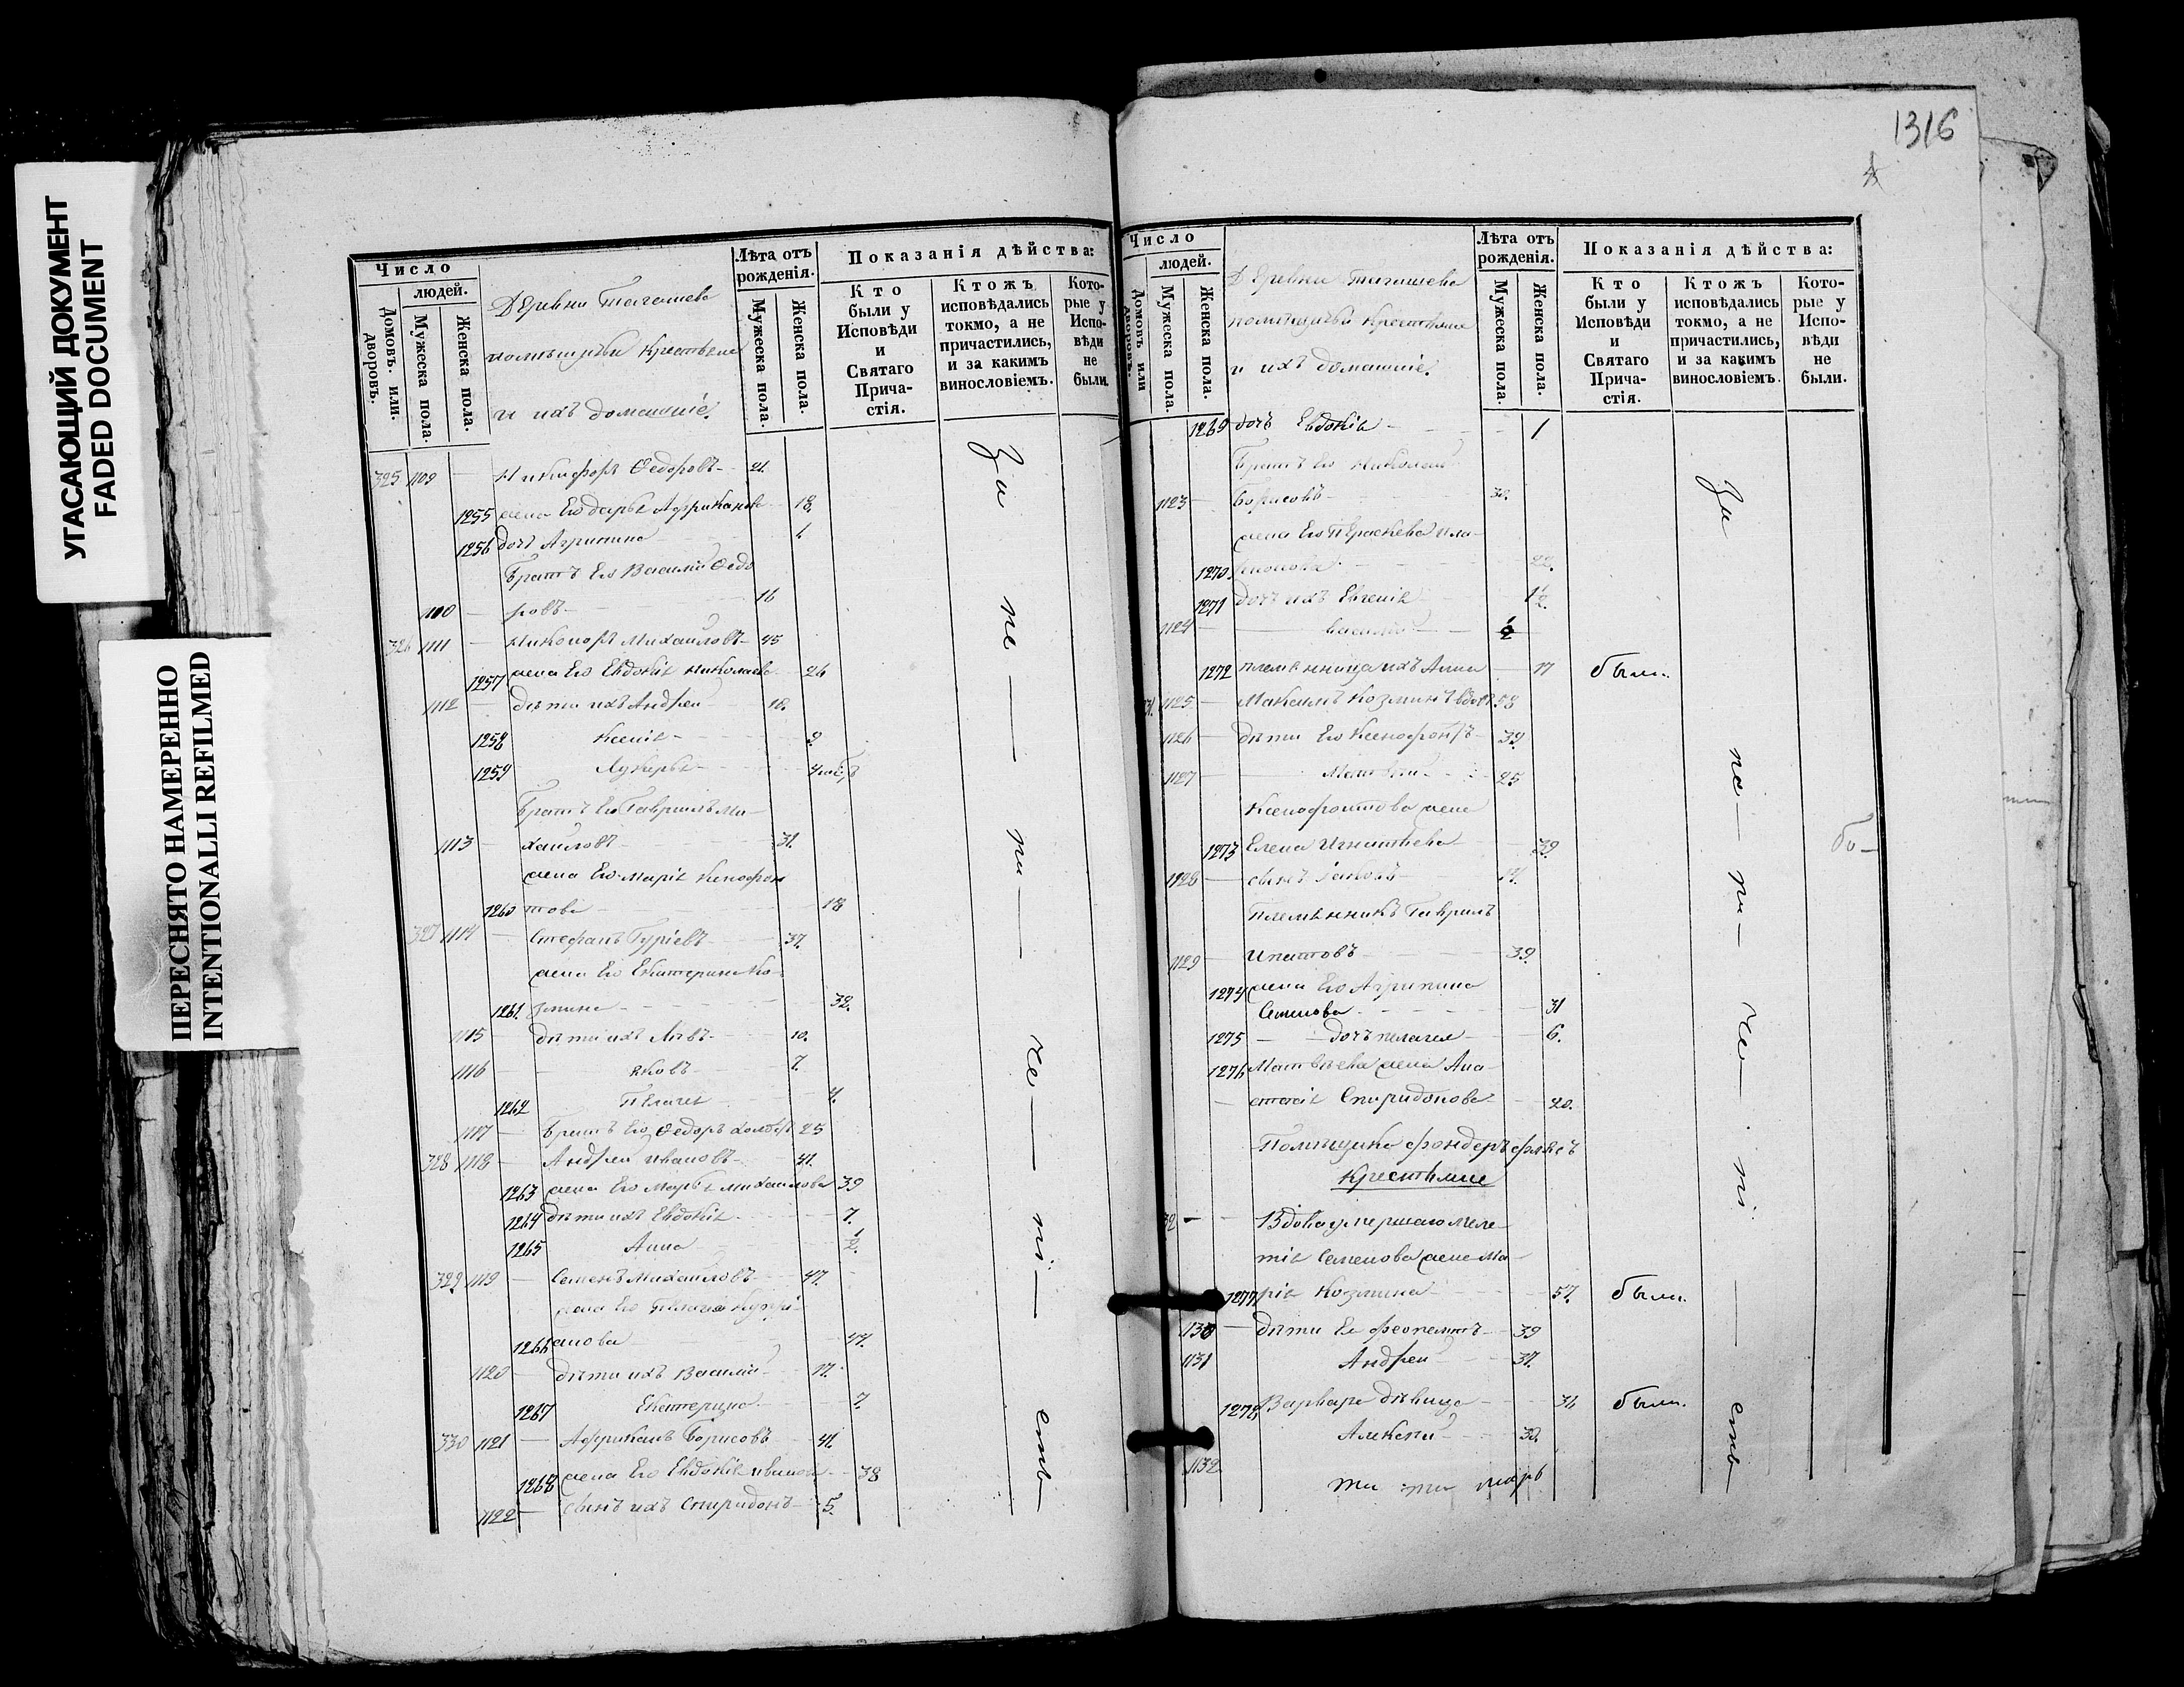 УГАСАЮЩИЙ ДОКУМЕНТ
FADED DOCUMENT
ПЕРЕСНЯТО НАМЕРЕННО
INTENTIONALLI REFILMED
Число
людей.
Домовъ или дворовъ.
Мужеска пола.
Женска пола.
Деревни
помѣщичьи Крестьяне
и ихъ домашніе.
Лѣта отъ рожденія.
Мужеска пола.
Женска пола.
Показанія дѣйства:
Кто были у Исповѣди и Святаго Прича-стія.
Ктожъ исповѣдались токмо, а не причастились, и за какимъ винословіемъ.
Кото-рые у Испо-вѣди не были.
325 1109 — Никифоръ Ѳедоровъ 21.
1255 жена Его Дарья Африканова 18.
1256 дочь Агрипина 1
Братъ Его Василій Ѳедо
1110 — ровъ 16
326 1111 — Никоноръ Михайловъ 45
1257 жена Его Евдокія Николаева 26
1112 — дѣти ихъ Андрей 10.
1258 Ксенія 9.
1259 Лукерья
Братъ Его Гавріилъ Ми-
1113 — хайловъ 31.
жена Его Марія Ксенофон
1260 това 18
327 1114 — Стефанъ Гуріевъ 37.
жена Его Екатерина Ко-
1261. змина 32.
1115 — дѣти ихъ Левъ 10.
1116 — Яковъ 7.
1262 Пелагея 4.
1117 — Братъ Его Ѳедоръ 25
328 1118 — Андрей Ивановъ 41.
1263 жена Его Марья Михаилова 39
1264 дѣти ихъ Евдокія 7.
1265 Анна 1/2.
329 1119 — Семенъ Михайловъ 47.
жена Его Пелагея Купрі-
1266 анова 47.
1120 — дѣти ихъ Василій 17.
1267 Екатерина 7
330 1121 — Африканъ Борисовъ 41.
1268 жена Его Евдокія Иванова 38
1122 — сынъ ихъ Спиридонъ 5.
За не — ра — че — ні — емъ
1316
Число
людей.
Домовъ или дворовъ.
Мужеска пола.
Женска пола.
Деревни
помѣщичьи Крестьяне
и ихъ домашніе.
Лѣта отъ рожденія.
Мужеска пола.
Женска пола.
Показанія дѣйства:
Кто были у Исповѣди и Святаго Прича-стія.
Ктожъ исповѣдались токмо, а не причастились, и за какимъ винословіемъ.
Кото-рые у Испо-вѣди не были.
1269 дочь Евдокія 1
Братъ Его Николай
1123 — Борисовъ 30.
жена Его Параскева Пла-
1270 22.
1271 дочь ихъ Евгенія 1 1/2.
1124 — Василій
1272 племянница ихъ Анна 17 были.
1125 — Максимъ Козминъ вдовъ 58
1126 — дѣти Его Ксенофонтъ 39.
1127 — Матвѣй 25
Ксенофонтова жена
1273 Елена Игнатьева 39.
1128 — сынъ
Племянникъ Гавріилъ
1129 — Ипатовъ 39
1274 жена Его Агрипина
Семенова 31
1275 — дочь Пелагея 6.
1276 Матвѣева жена Ана-
— стасія Спиридонова 20.
Помѣщика Фондерфлясъ
Крестьяне
— Вдова умершаго Меле-
тія Семенова жена Ма-
1277 рія Козмина 57. были.
1130 — дѣти Ея Феопемптъ 39
1131 Андрей 37.
1278 Варвара дѣвица 31 были.
Алексѣй 30.
1132
За не — ра — че — ні — емъ